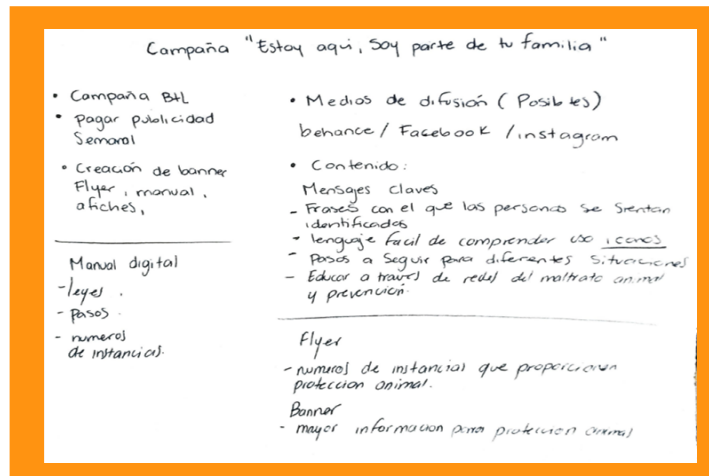 Campaña "Estoy aqui, Soy parte de tu familia"
• Campaña BtL
• pagar publicidad
Semanal
• Creación de banner
Flyer, manual,
afiches,
Manual digital
- leyes.
- pasos.
- numeros
de instancias.
• Medios de difusión (Posibles)
behance / Facebook / instagram
• Contenido:
Mensajes claves
- Frases con el que las personas se sientan
identificados
- lenguaje facil de comprender uso iconos
- Pasos a seguir para diferentes situaciones
- Educar a través de redes del maltrato animal
y prevención.
Flyer
- numeros de instancias que proporcionan
protección animal.
Banner
- mayor informacion para protección animal